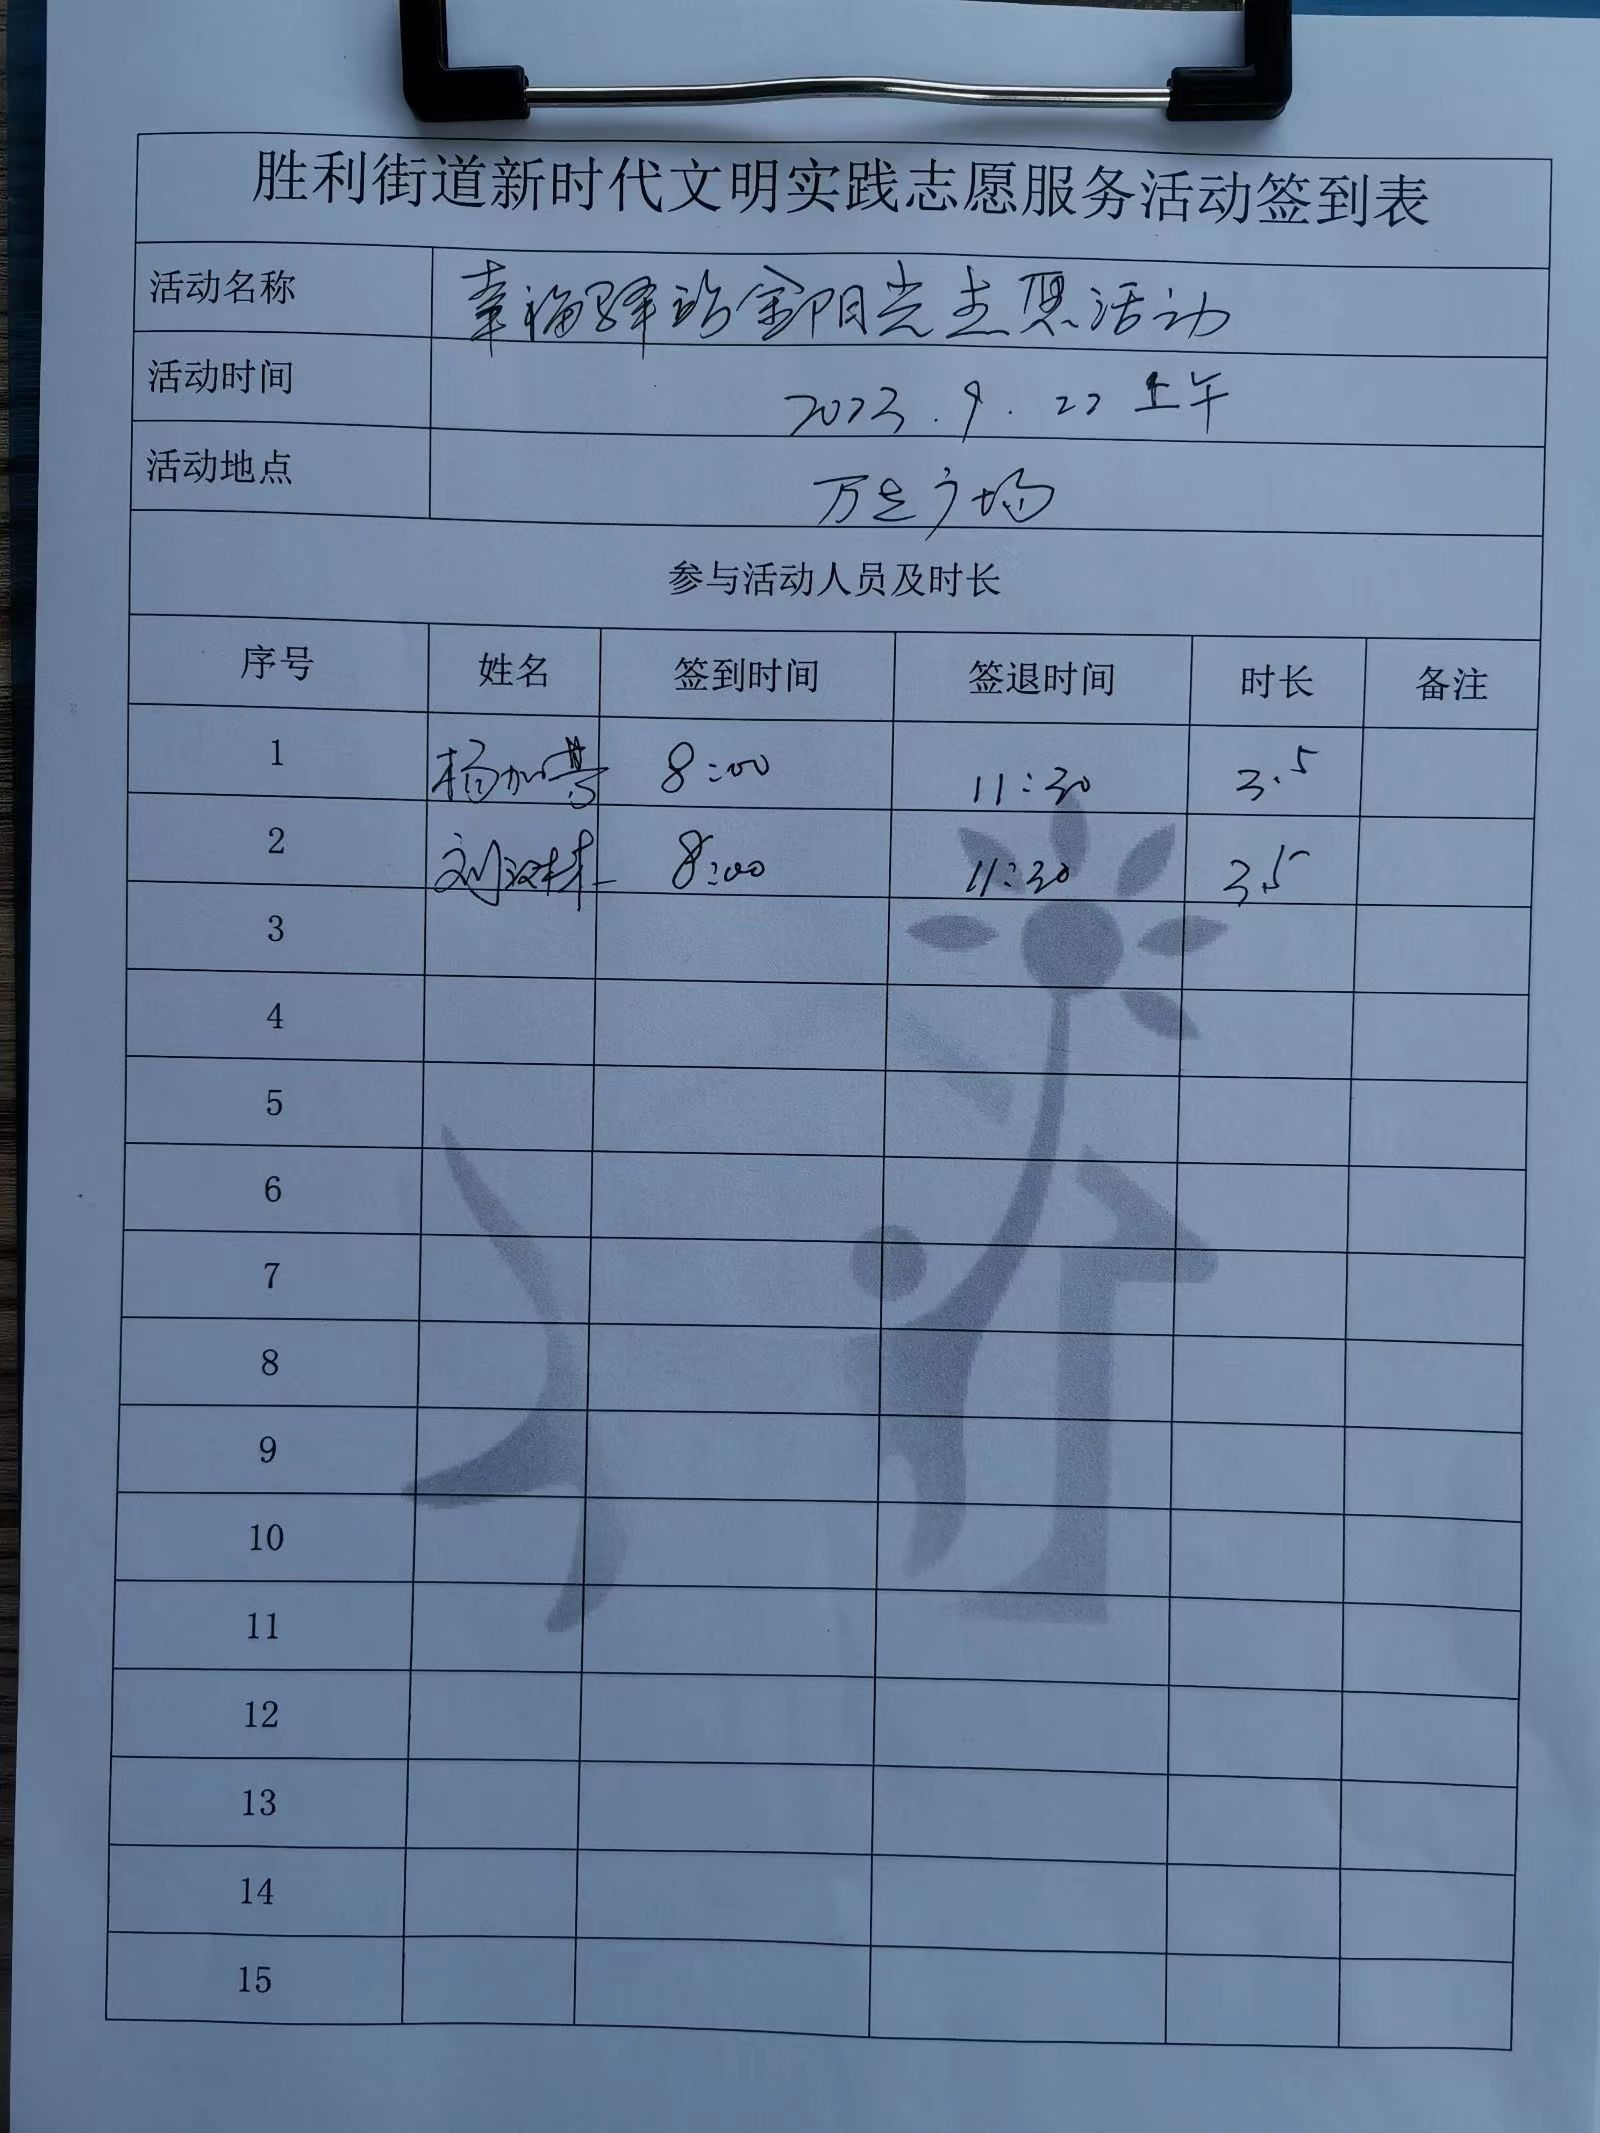 胜利街道新时代文明实践志愿服务活动签到表
活动名称 幸福驿站金阳光志愿活动
活动时间 2023.9.22 上午
活动地点 万达广场
参与活动人员及时长
序号 姓名 签到时间 签退时间 时长 备注
1 杨加 8:00 11:30 3.5
2 刘汉林 8:00 11:30 3.5
3
4
5
6
7
8
9
10
11
12
13
14
15